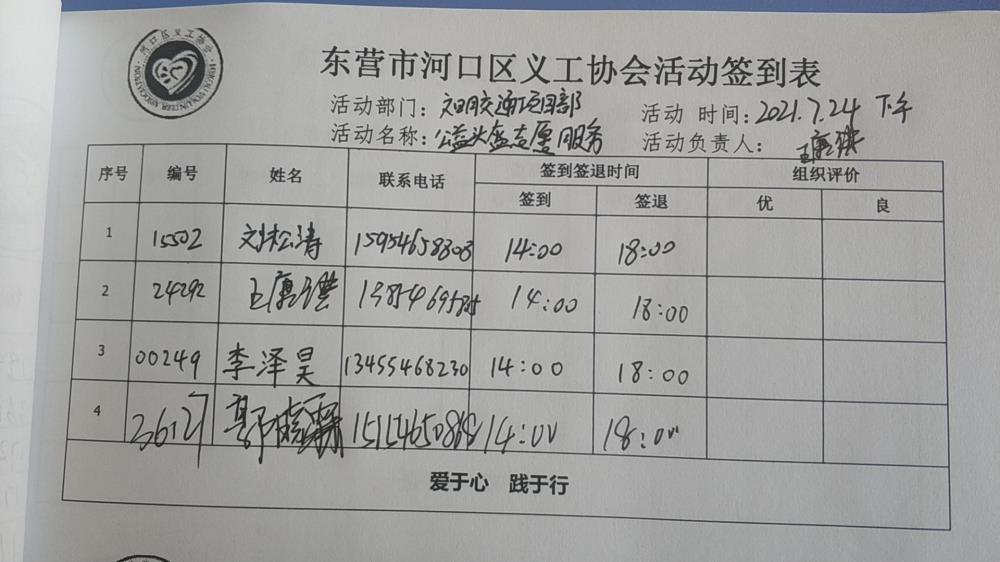 河口区义工协会
HEKOU VOLUNTEER ASSOCIATION
东营市河口区义工协会活动签到表
活动部门：文明交通项目部
活动 时间：2021.7.24 下午
活动名称：公益头盔志愿服务
活动负责人：
序号 编号 姓名 联系电话 签到签退时间 组织评价
签到 签退 优 良
1 15502 刘松涛 15954658808 14:00 18:00
2 24292 14:00 18:00
3 00249 李泽昊 13455468230 14:00 18:00
4 14:00 18:00
爱于心 践于行